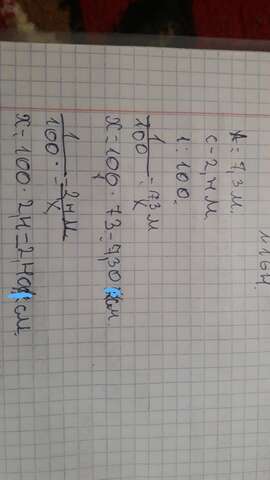 N164.
A = 7,3 м.
с - 2,4 м
1 : 100.
1/100 = 73 м/x
x = 100 · 73 = 7,30 см
1/100 · = 2,4 м/x
x = 100 · 2,4 = 2,40 см.